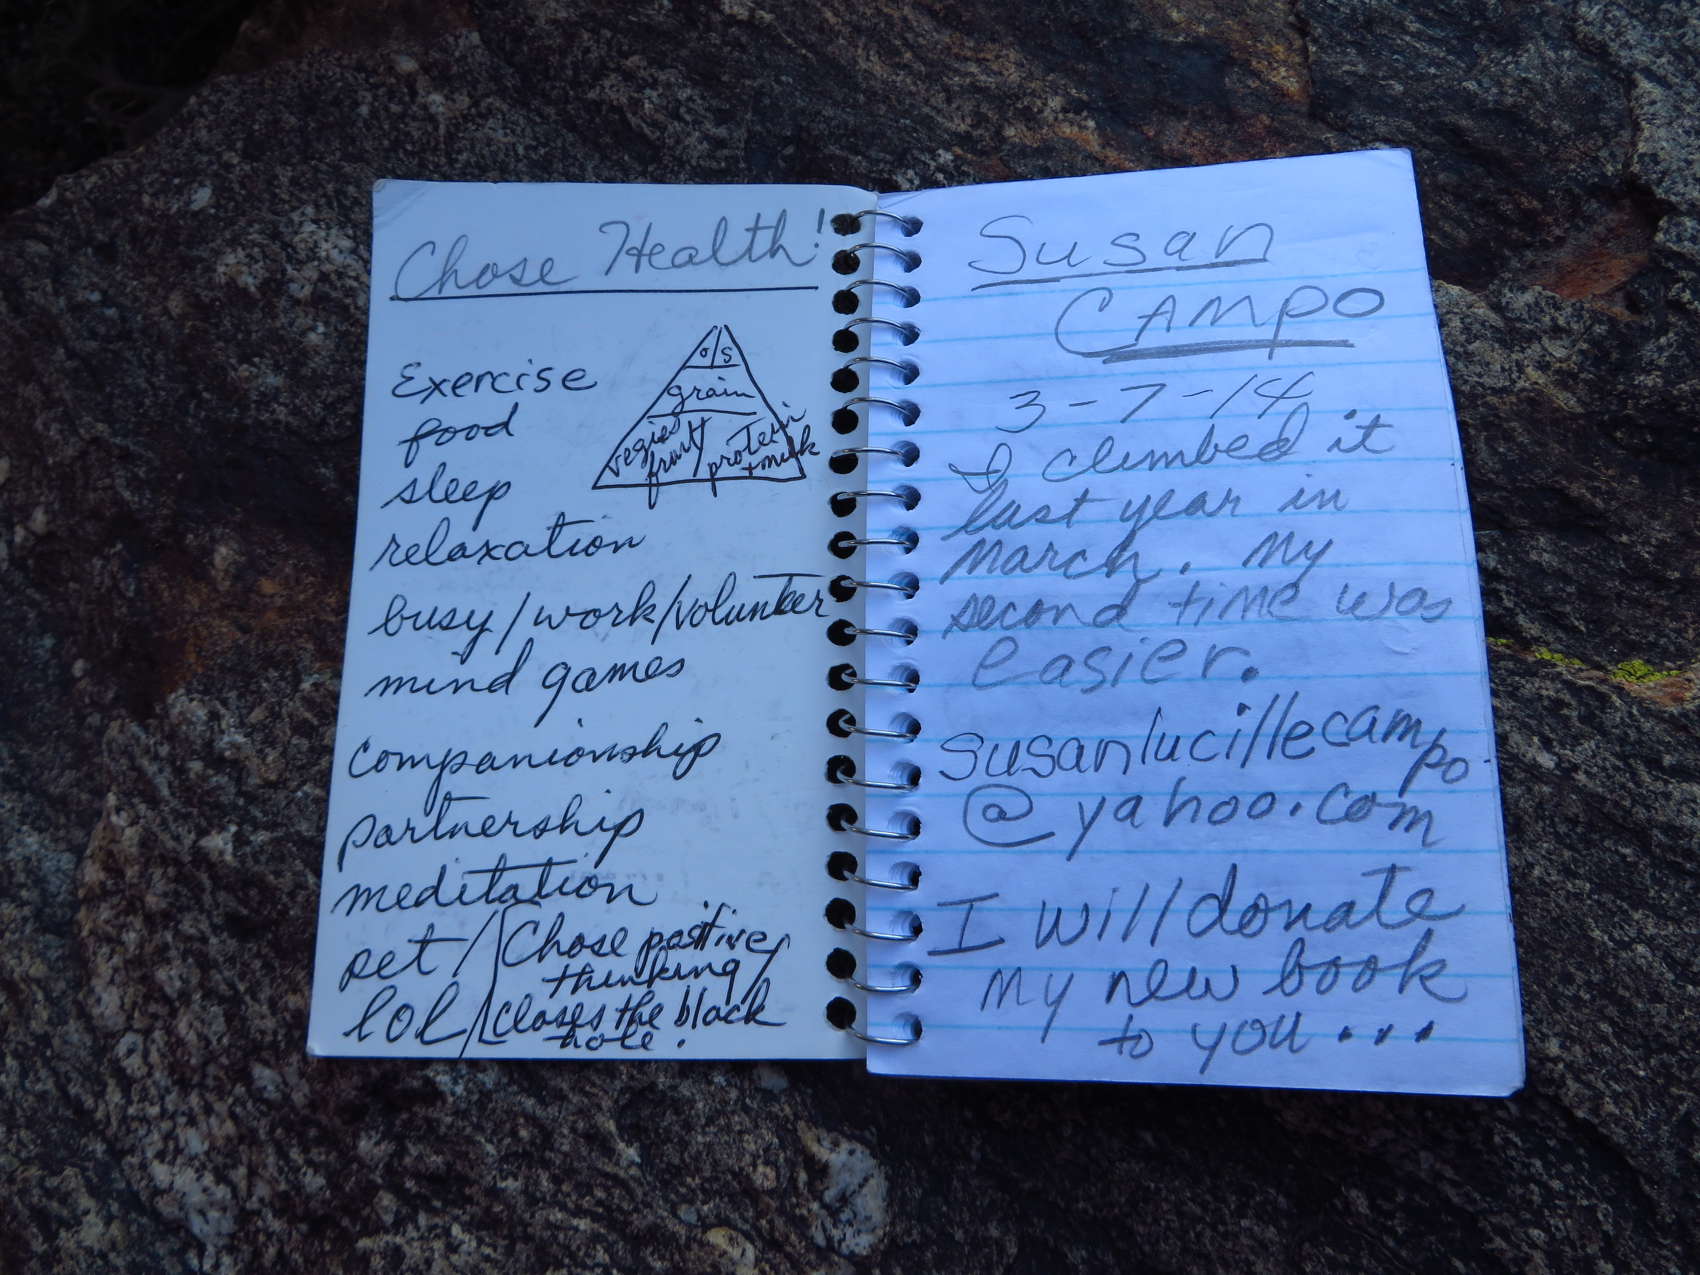 Chose Health!
Exercise
food
sleep
relaxation
busy/work/volunteer
mind games
companionship
partnership
meditation
pet/
lol
Chose positive
thinking
closes the black
hole.
o/s
grain
vegies
fruit
protein
+ milk
Susan
CAMPO
3-7-14
I climbed it
last year in
March. My
second time was
easier.
susanlucillecampo
@yahoo.com
I will donate
my new book
to you...